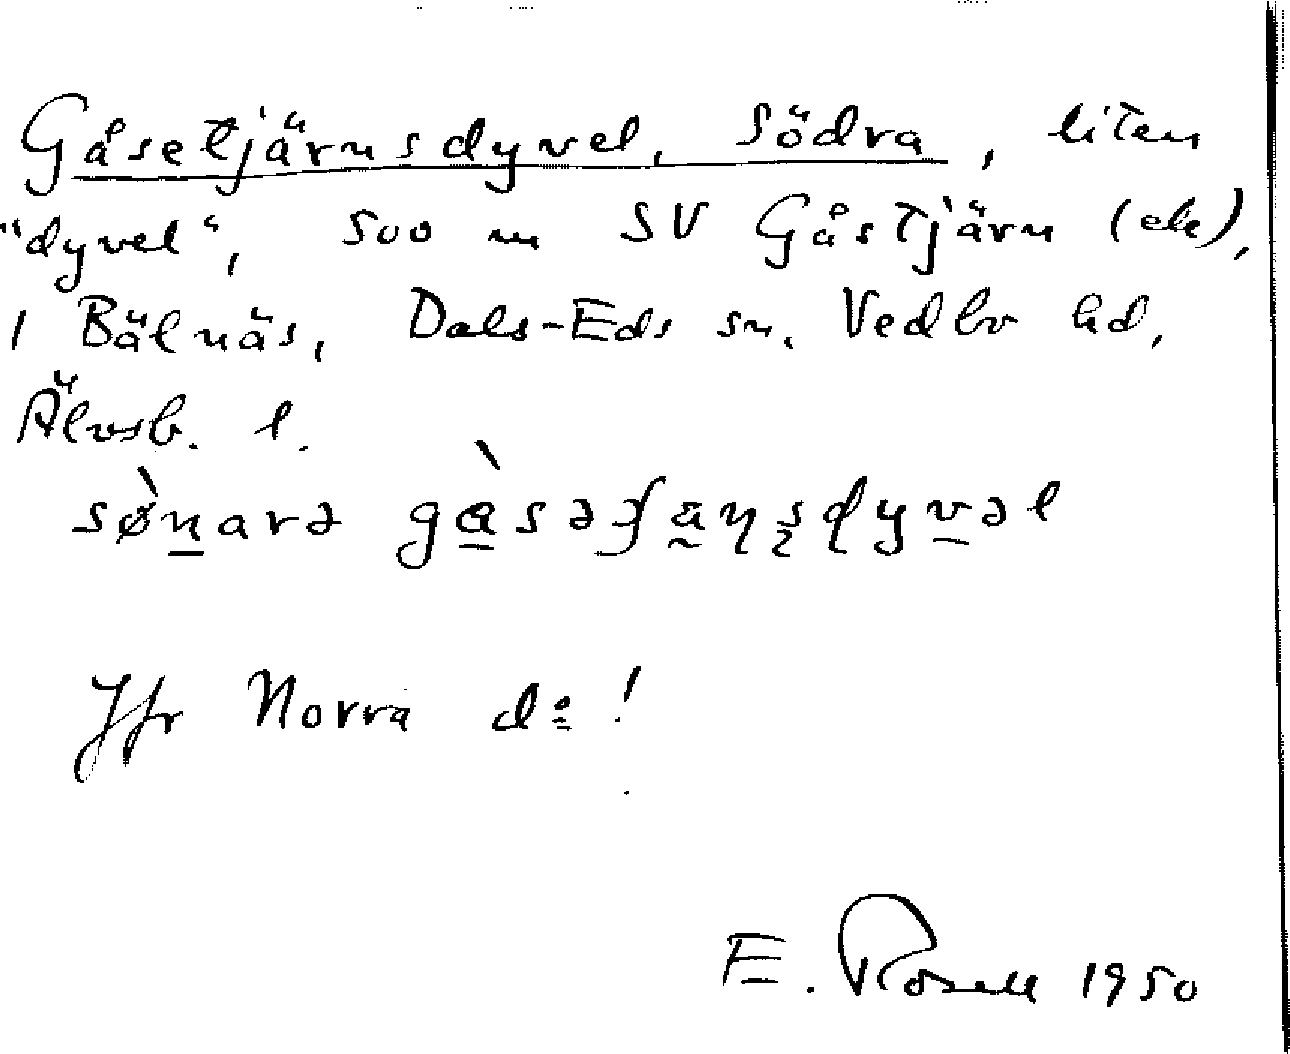 Gåsetjärnsdyvel, Södra, liten
"dyvel", 500 m SV Gåstjärn (ek),
i Bälnäs, Dals-Eds sn. Vedbo hd,
Älvsb. l.
Jfr Norra d:e!
E. Rosell 1950